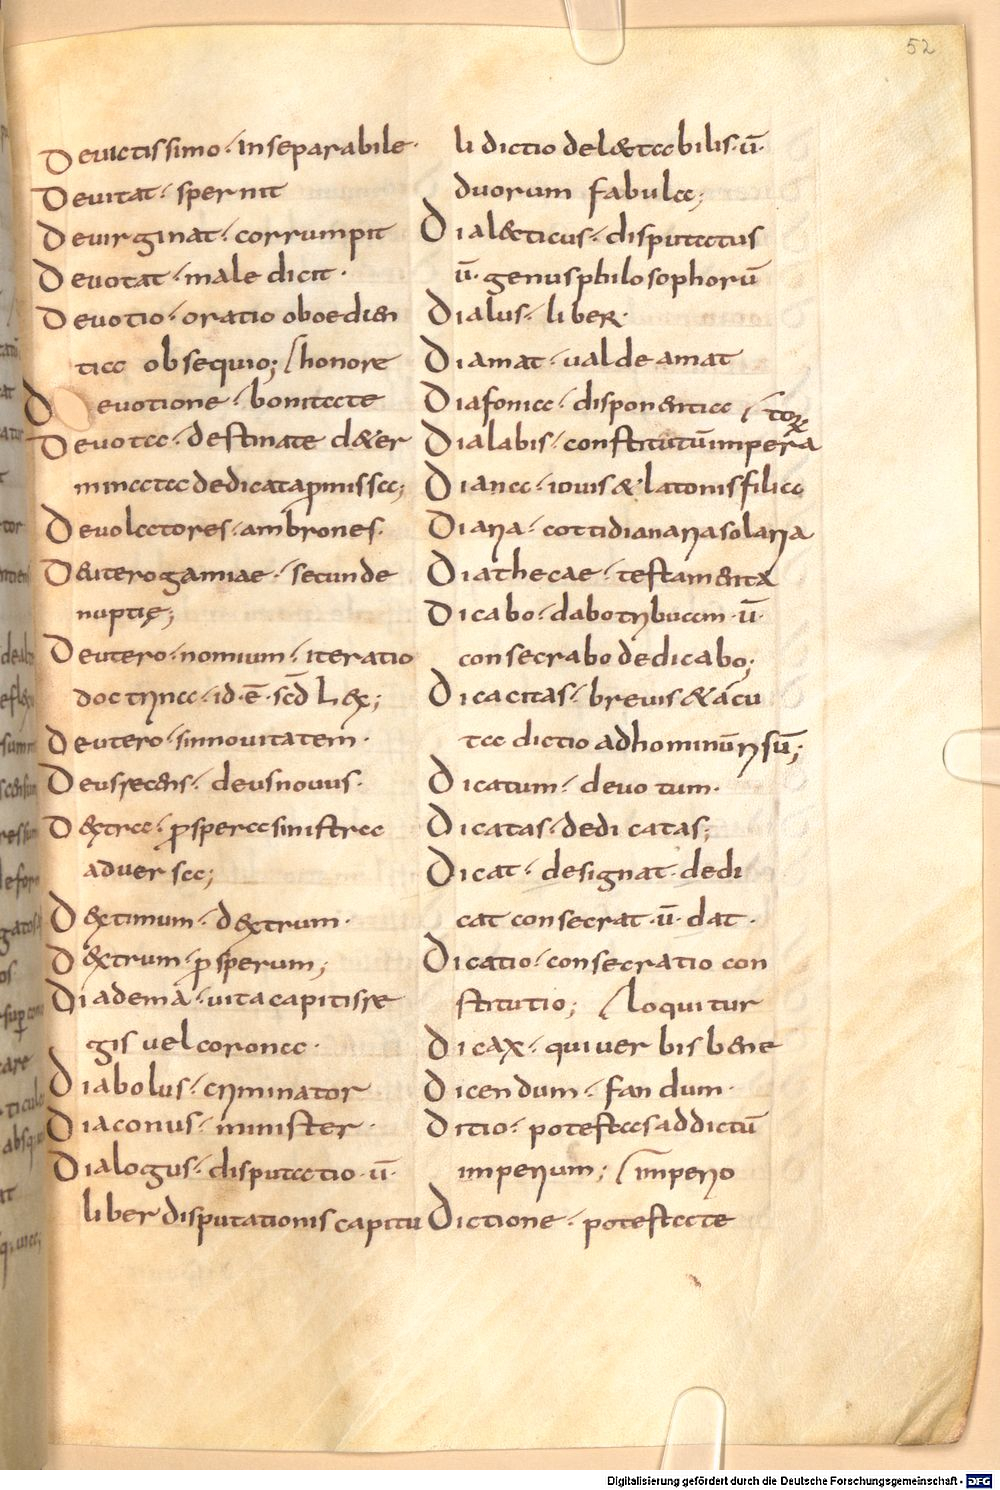 52
Deuictissimo · inseparabile ·
Deuitat · spernit
Deuirginat · corrumpit
Deuotat · male dicit ·
Deuotio · oratio oboedien
tia obsequio; / honore
Deuotione · bonitate
Deuota · destinate d&er
minata dedicata pmissa;
Deuolatores · ambrones ·
Deuterogamiae · secunde
nuptię;
Deutero · nomium · iteratio
doctrina · id · ē · scd̄ Lex;
Deutero · sinnouitatem ·
Deus recens · deus nouus ·
Dextra · pspera sinistra
aduersa;
Dextimum · dextrum ·
Dextrum · psperum;
Diadema · uita capitis re
gis uel corona ·
Diabolus · criminator
Diaconus · minister ·
Dialogus · disputatio · ū ·
liber disputationis capitu
li dictio delectabilis · ū ·
duorum fabula;
Dial&ticus · disputatus
ū · genus philosophorū
Dialus · liber ·
Diamat · ualde amat
Diafonia · disponentia
Dialabis · constitutū impera / torꝝ
Diana · iouis & latonis filia
Diaria · cottidiana ria solaria
Diathecae · testamenta
Dicabo · dabo tribuam · ū ·
consecrabo dedicabo;
Dicacitas · breuis & acu
ta dictio ad hominū risū;
Dicatum · deuotum ·
Dicatas · dedicatas;
Dicat · designat · dedi
cat consecrat · ū · dat ·
Dicatio · consecratio con
stitutio; / loquitur
Dicax · qui uerbis bene
Dicendum · fandum ·
Ditio · potestas addictū
imperium; / imperio
Dictione · potestate
Digitalisierung gefördert durch die Deutsche Forschungsgemeinschaft - DFG